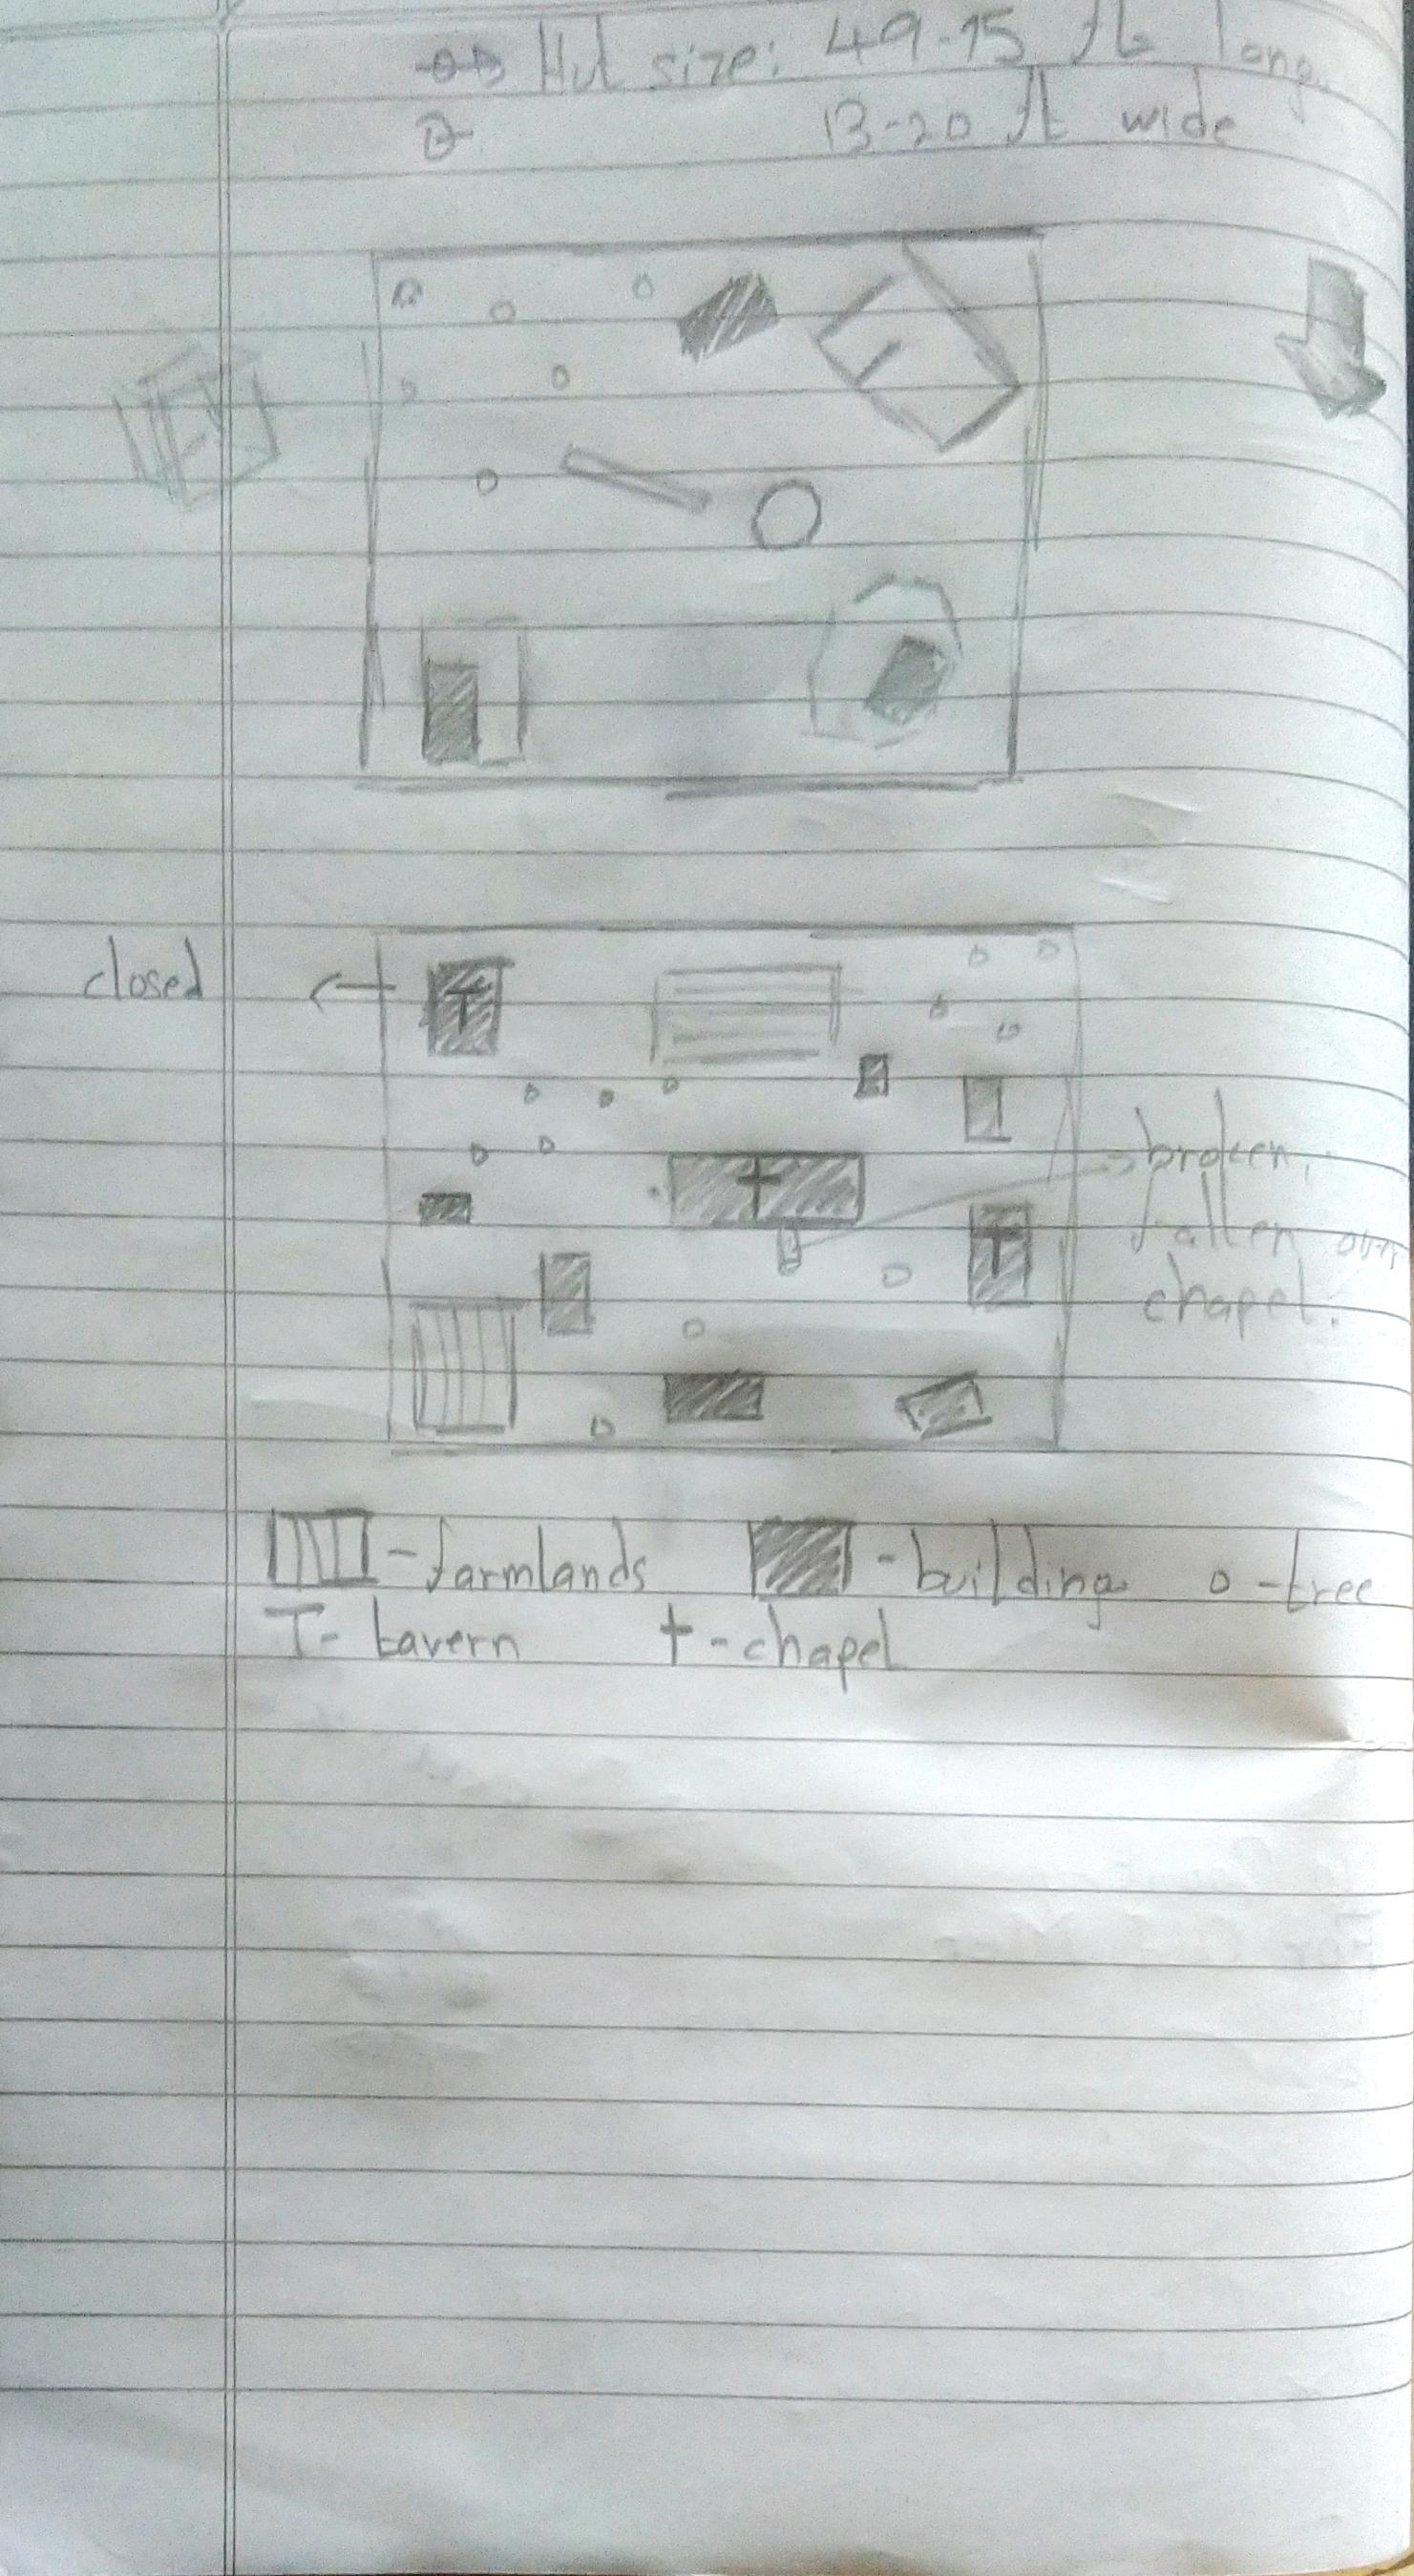 Hut size: 49-15 ft long
13-20 ft wide
closed
T
broken,
fallen
chapel.
T
- farmlands - building o - tree
T - tavern † - chapel